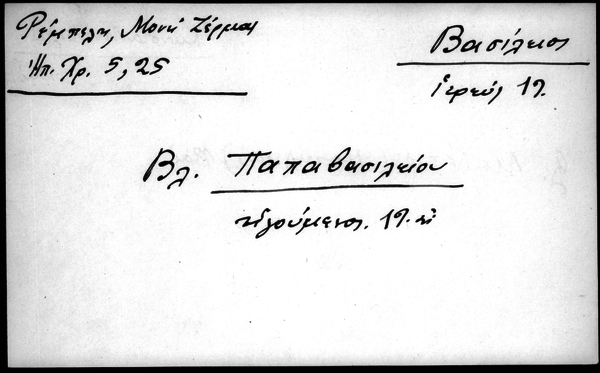 Ρέμπελη, Μονή Ζέρμας
Ἠπ. Χρ. 5, 25
Βασίλειος
ἱερεύς 19.
Βλ. Παπαβασιλείου
ἡγούμενος. 19. αἰ